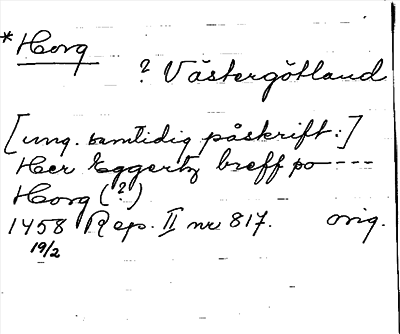 *Horg
? Västergötland
[ung. samtidig påskrift:]
Her Eggertz breff po ---
Horg (?)
1458 Rep. II nr 817. orig.
19/2